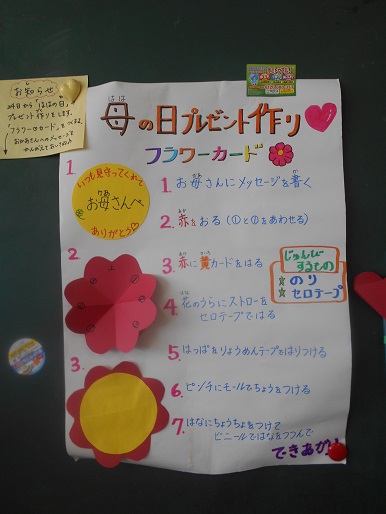 お知らせ
「ははの日」
プレゼント作りをします。
「フラワーカード」
おかあさんへのメッセージを
はは
母の日プレゼント作り
フラワーカード
1
いつも見守ってくれて
お母さんへ
ありがとう
1. お母さんにメッセージを書く
2. 赤をおる(①と②をあわせる)
2.
3. 赤に黄カードをはる
じゅんび
するもの
のり
セロテープ
4. 花のうらにストローを
セロテープではる
5. はっぱをりょうめんテープをはりつける
3.
6. ピンチにモールでちょうをつける
7. はなにちょうちょをつけて
ビニールではなをつつんで
できあがり